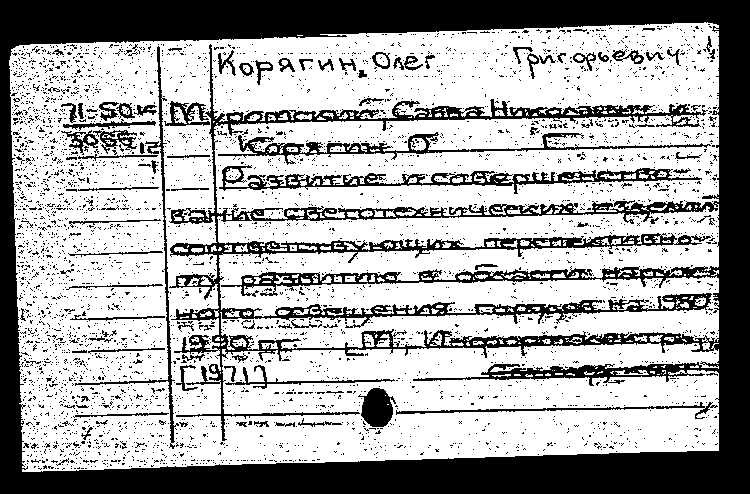 Корягин, Олег Григорьевич
71-50к Муромский, Савва Николаевич и
3066 Корягин, О Г
Развитие и совершенство-
вание светотехнических изделий
соответствующих перспективно-
му развитию в области наруж-
ного освещения городов на 1980
1990 гг М, Информэлектро,
[1971]